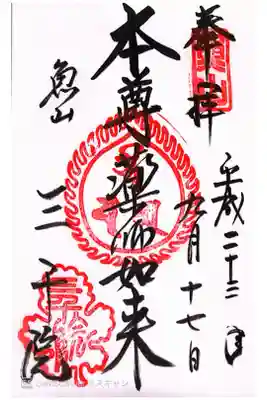 奉拝
平成二十三年
九月十七日
本尊薬師如来
魚山
三千院